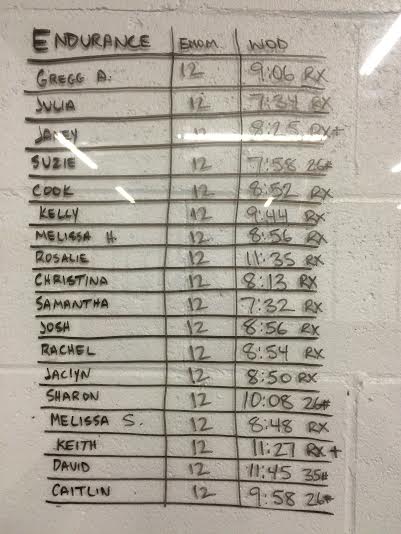 ENDURANCE EMOM WOD
GREGG A. 12 9:06 RX
JULIA 12 7:34 RX
12 8:25 RX+
SUZIE 12 7:58 26#
COOK 12 8:52 RX
KELLY 12 9:44 RX
MELISSA H. 12 8:56 RX
ROSALIE 12 11:35 RX
CHRISTINA 12 8:13 RX
SAMANTHA 12 7:32 RX
JOSH 12 8:56 RX
RACHEL 12 8:54 RX
JACLYN 12 8:50 RX
SHARON 12 10:08 26#
MELISSA S. 12 8:48 RX
KEITH 12 11:27 RX+
DAVID 12 11:45 35#
CAITLIN 12 9:58 26#